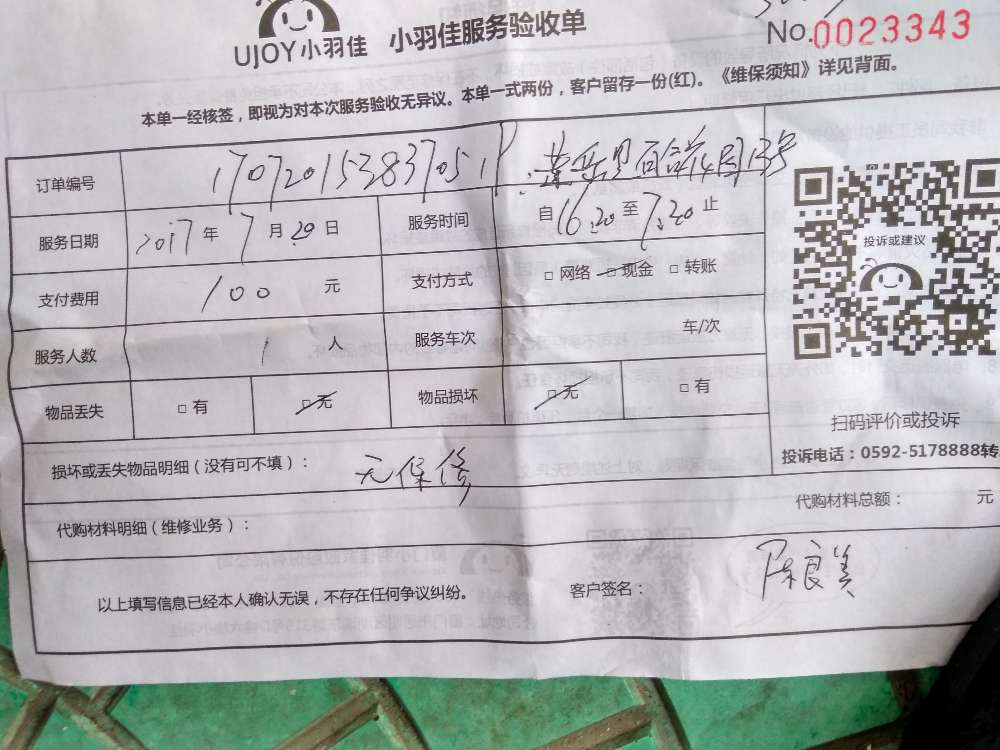 UJOY小羽佳 小羽佳服务验收单
No.0023343
本单一经核签，即视为对本次服务验收无异议。本单一式两份，客户留存一份(红)。《维保须知》详见背面。
订单编号 170720153837051
服务日期 2017 年 7 月 20 日 服务时间 自 16:20 至 7:20 止
支付费用 100 元 支付方式 □ 网络 □ 现金 □ 转账
服务人数 1 人 服务车次 车/次
物品丢失 □ 有 □ 无 物品损坏 □ 无 □ 有
投诉或建议
扫码评价或投诉
投诉电话：0592-5178888转
损坏或丢失物品明细（没有可不填）： 无保修
代购材料总额： 元
代购材料明细（维修业务）：
以上填写信息已经本人确认无误，不存在任何争议纠纷。 客户签名： 陈良美